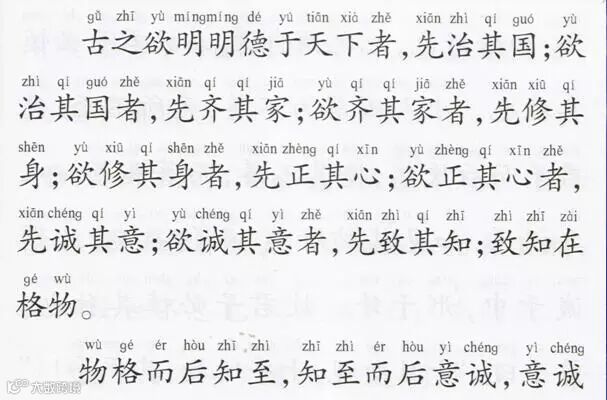 gǔ zhī yù míngmíng dé yú tiān xià zhě xiān zhì qí guó yù
古之欲明明德于天下者,先治其国;欲
zhì qí guó zhě xiān qí qí jiā yù qí qí jiā zhě xiān xiū qí
治其国者,先齐其家;欲齐其家者,先修其
shēn yù xiū qí shēn zhě xiān zhèng qí xīn yù zhèng qí xīn zhě
身;欲修其身者,先正其心;欲正其心者,
xiān chéng qí yì yù chéng qí yì zhě xiān zhì qí zhī zhì zhī zài
先诚其意;欲诚其意者,先致其知;致知在
gé wù
格物。
wù gé ér hòu zhī zhì zhī zhì ér hòu yì chéng yì chéng
物格而后知至,知至而后意诚,意诚